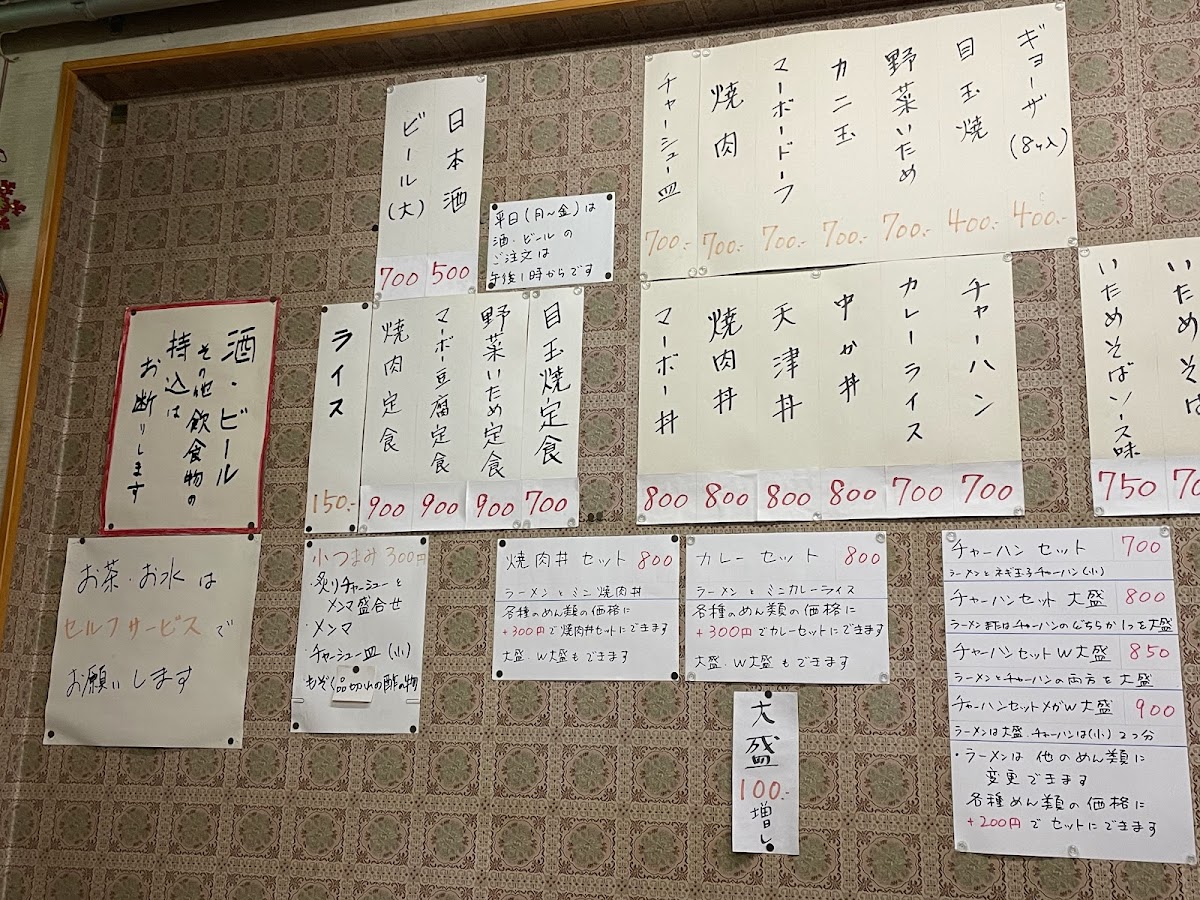 ギョーザ(8ヶ入) 400.-
目玉焼 400.-
野菜いため 700.-
カニ玉 700.-
マーボードーフ 700.-
焼肉 700.-
チャーシュー皿 700.-
日本酒 500
ビール(大) 700
平日(月〜金)は
酒・ビールの
ご注文は
午後1時からです
いためそば
いためそばソース味 750
チャーハン 700
カレーライス 700
中か丼 800
天津丼 800
焼肉丼 800
マーボー丼 800
目玉焼定食 700
野菜いため定食 900
マーボー豆腐定食 900
焼肉定食 900
ライス 150.-
酒・ビール
その他飲食物の
持込は
お断りします
お茶・お水は
セルフサービスで
お願いします
小つまみ 300円
・炙りチャーシューと
メンマ盛合せ
・メンマ
・チャーシュー皿(小)
品切れ
の酢の物
焼肉丼セット 800
ラーメンとミニ焼肉丼
各種のめん類の価格に
+300円で焼肉丼セットにできます
大盛・W大盛もできます
カレーセット 800
ラーメンとミニカレーライス
各種のめん類の価格に
+300円でカレーセットにできます
大盛・W大盛もできます
大盛
100.-
増し
チャーハンセット 700
ラーメンとネギ玉子チャーハン(小)
チャーハンセット大盛 800
ラーメンまたはチャーハンのどちらか1つを大盛
チャーハンセットW大盛 850
ラーメンとチャーハンの両方を大盛
チャーハンセットメガW大盛 900
ラーメンは大盛.チャーハンは(小)2つ分
・ラーメンは他のめん類に
変更できます
各種めん類の価格に
+200円でセットにできます